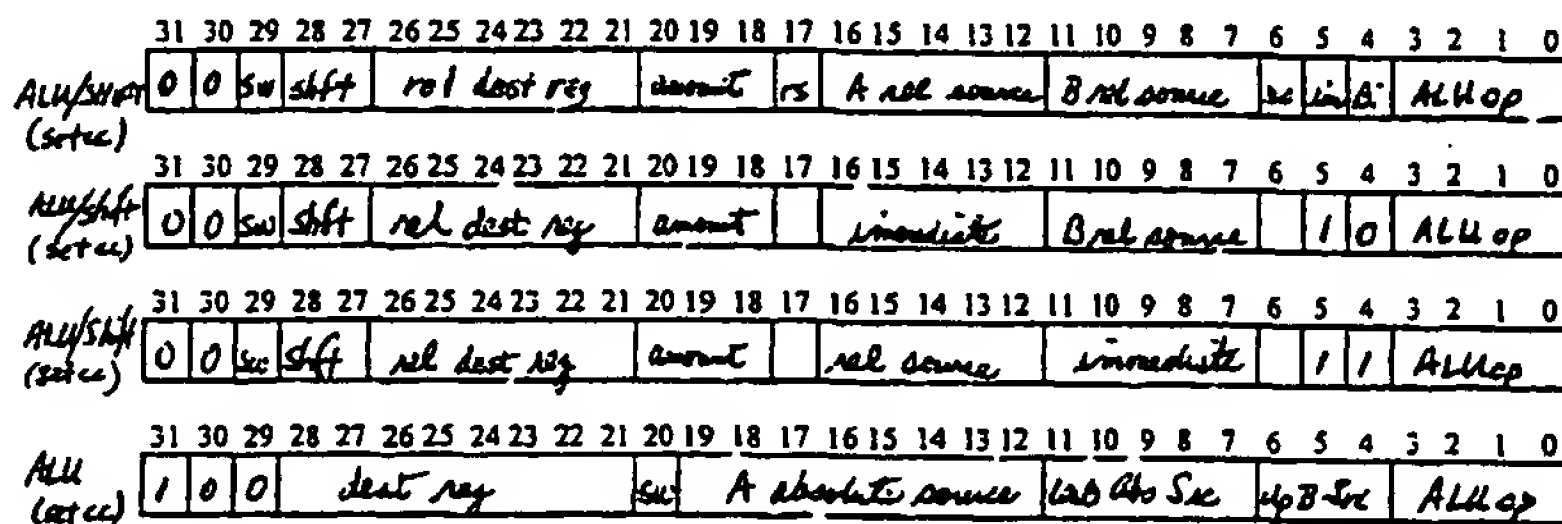 31 30 29 28 27 26 25 24 23 22 21 20 19 18 17 16 15 14 13 12 11 10 9 8 7 6 5 4 3 2 1 0
ALU/SHIFT 0 0 sw shft rel dest reg amount rs A rel source B rel source im Bi ALU op
(setcc)
31 30 29 28 27 26 25 24 23 22 21 20 19 18 17 16 15 14 13 12 11 10 9 8 7 6 5 4 3 2 1 0
ALU/shft 0 0 sw shft rel dest reg amount immediate B rel source 1 0 ALU op
(setcc)
31 30 29 28 27 26 25 24 23 22 21 20 19 18 17 16 15 14 13 12 11 10 9 8 7 6 5 4 3 2 1 0
ALU/Shift 0 0 scc Shft rel dest reg amount rel source immediate 1 1 ALU op
(setcc)
31 30 29 28 27 26 25 24 23 22 21 20 19 18 17 16 15 14 13 12 11 10 9 8 7 6 5 4 3 2 1 0
ALU 1 0 0 dest reg A absolute source Abs Src B Src ALU op
(setcc)